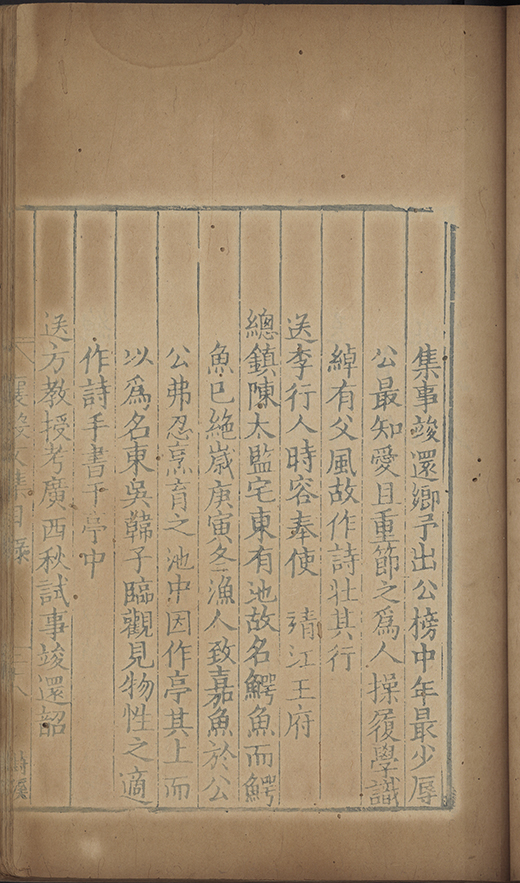 集事竣還鄉予出公榜中年最少辱
公最知愛且重節之爲人操履學識
綽有父風故作詩壯其行
送李行人時容奉使 靖江王府
總鎮陳太監宅東有池故名鰐魚而鰐
魚已絶歲庚寅冬漁人致嘉魚於公
公弗忍烹育之池中因作亭其上而
以爲名東吳韓子臨觀見物性之適
作詩手書于亭中
送方教授考廣西秋試事竣還韶
襄毅文集目錄